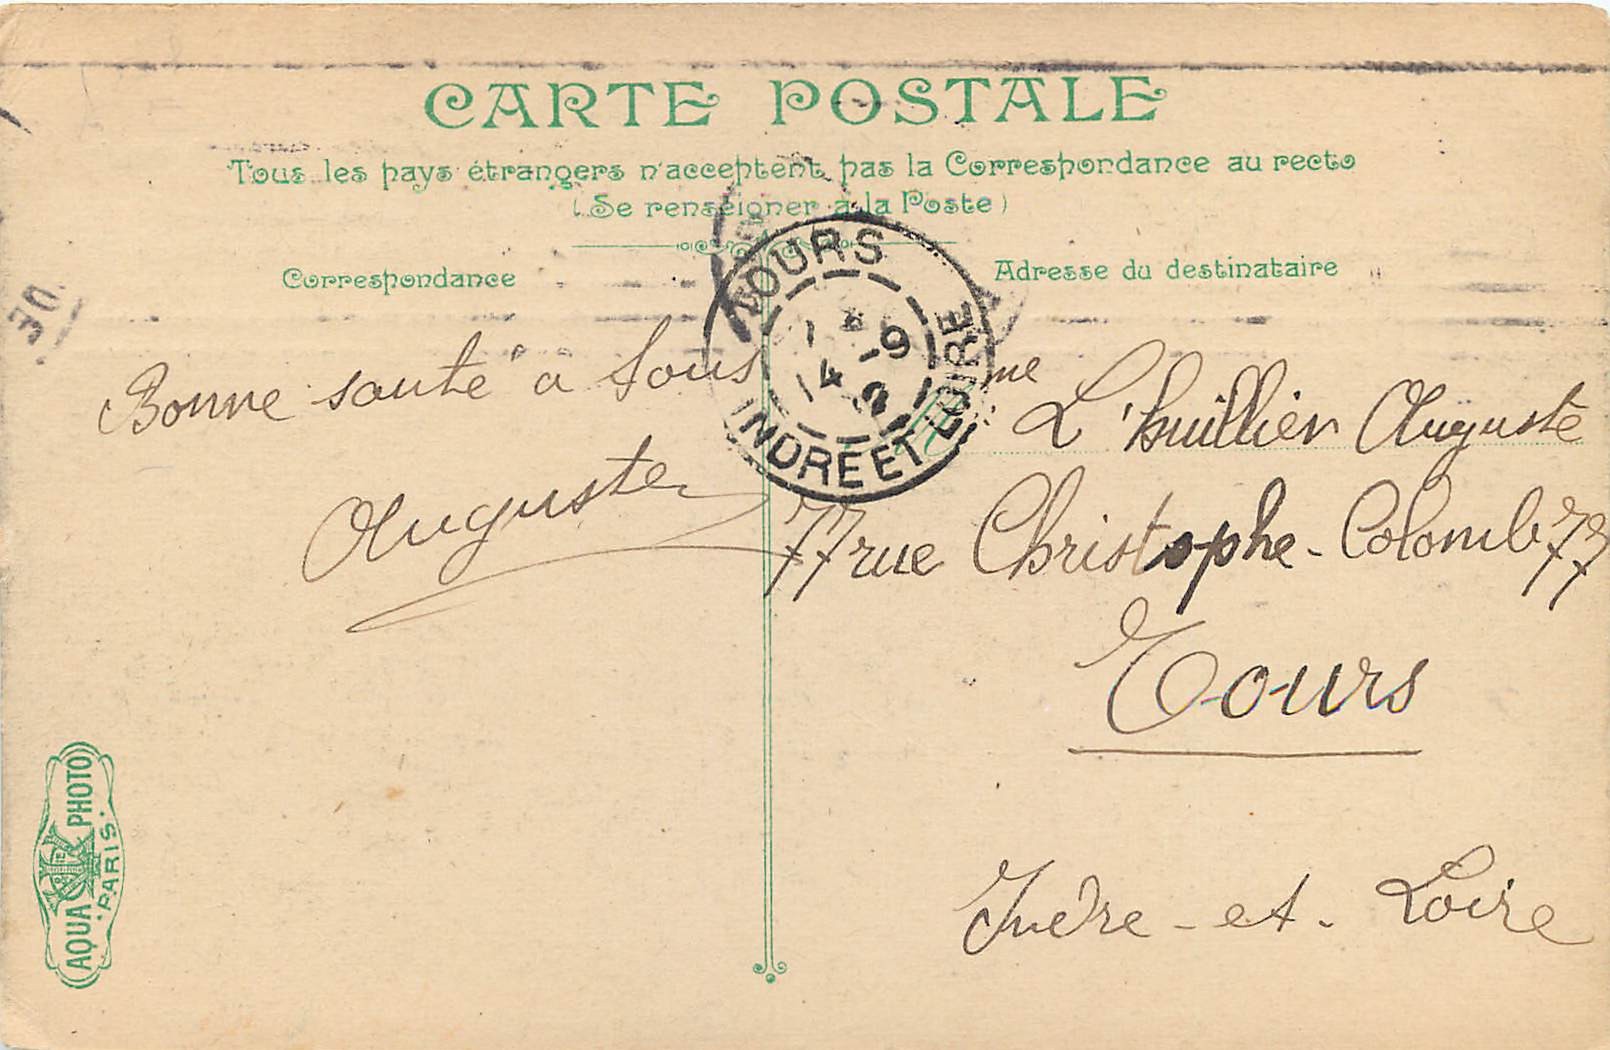 CARTE POSTALE
Tous les pays étrangers n'acceptent pas la Correspondance au recto
(Se renseigner à la Poste)
Correspondance
Adresse du destinataire
TOURS
4 -9
INDRE ET LOIRE
Bonne santé à Tous
Auguste
M me L'huillier Auguste
77 rue Christophe-Colomb 77
Tours
Indre-et-Loire
AQUA PHOTO
PARIS